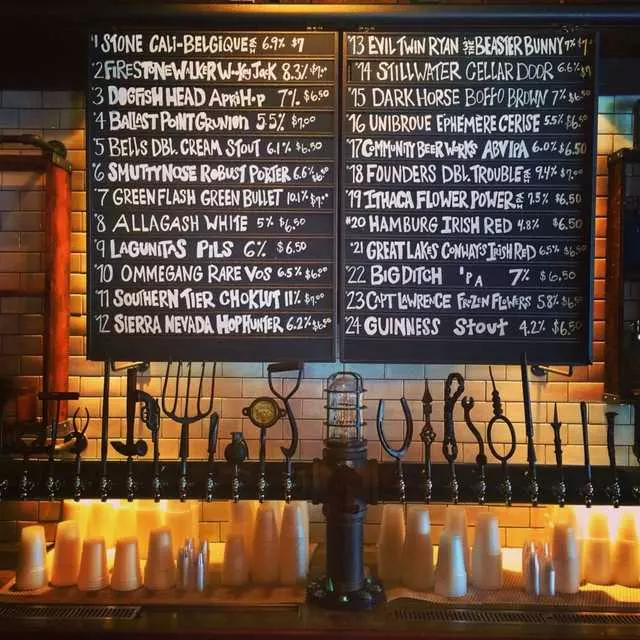 1 STONE CALI-BELGIQUE IPA 6.9% $7
2 FIRESTONE WALKER WOOKEY JACK 8.3% $7.00
3 DOGFISH HEAD APRIHOP 7% $6.50
4 BALLAST POINT GRUNION 5.5% $7.00
5 BELLS DBL. CREAM STOUT 6.1% $6.50
6 SMUTTYNOSE ROBUST PORTER 6.6% $6.50
7 GREEN FLASH GREEN BULLET 10.1% $7.00
8 ALLAGASH WHITE 5% $6.50
9 LAGUNITAS PILS 6% $6.50
10 OMMEGANG RARE VOS 6.5% $6.50
11 SOUTHERN TIER CHOKLUT 11% $7.00
12 SIERRA NEVADA HOP HUNTER 6.2% $6.50
13 EVIL TWIN RYAN THE BEASTER BUNNY 7% $7
14 STILLWATER CELLAR DOOR 6.6% $7
15 DARK HORSE BOFFO BROWN 7% $6.50
16 UNIBROUE EPHEMERE CERISE 5.5% $6.50
17 COMMUNITY BEER WORKS ABVIPA 6.0% $6.50
18 FOUNDERS DBL TROUBLE IPA 9.4% $7.00
19 ITHACA FLOWER POWER IPA 7.5% $6.50
#20 HAMBURG IRISH RED 4.8% $6.50
#21 GREAT LAKES CONWAY'S IRISH RED 6.5% $6.50
22 BIG DITCH IPA 7% $6.50
23 CAPT LAWRENCE FROZEN FLOWERS 5.8% $6.50
24 GUINNESS STOUT 4.2% $6.50